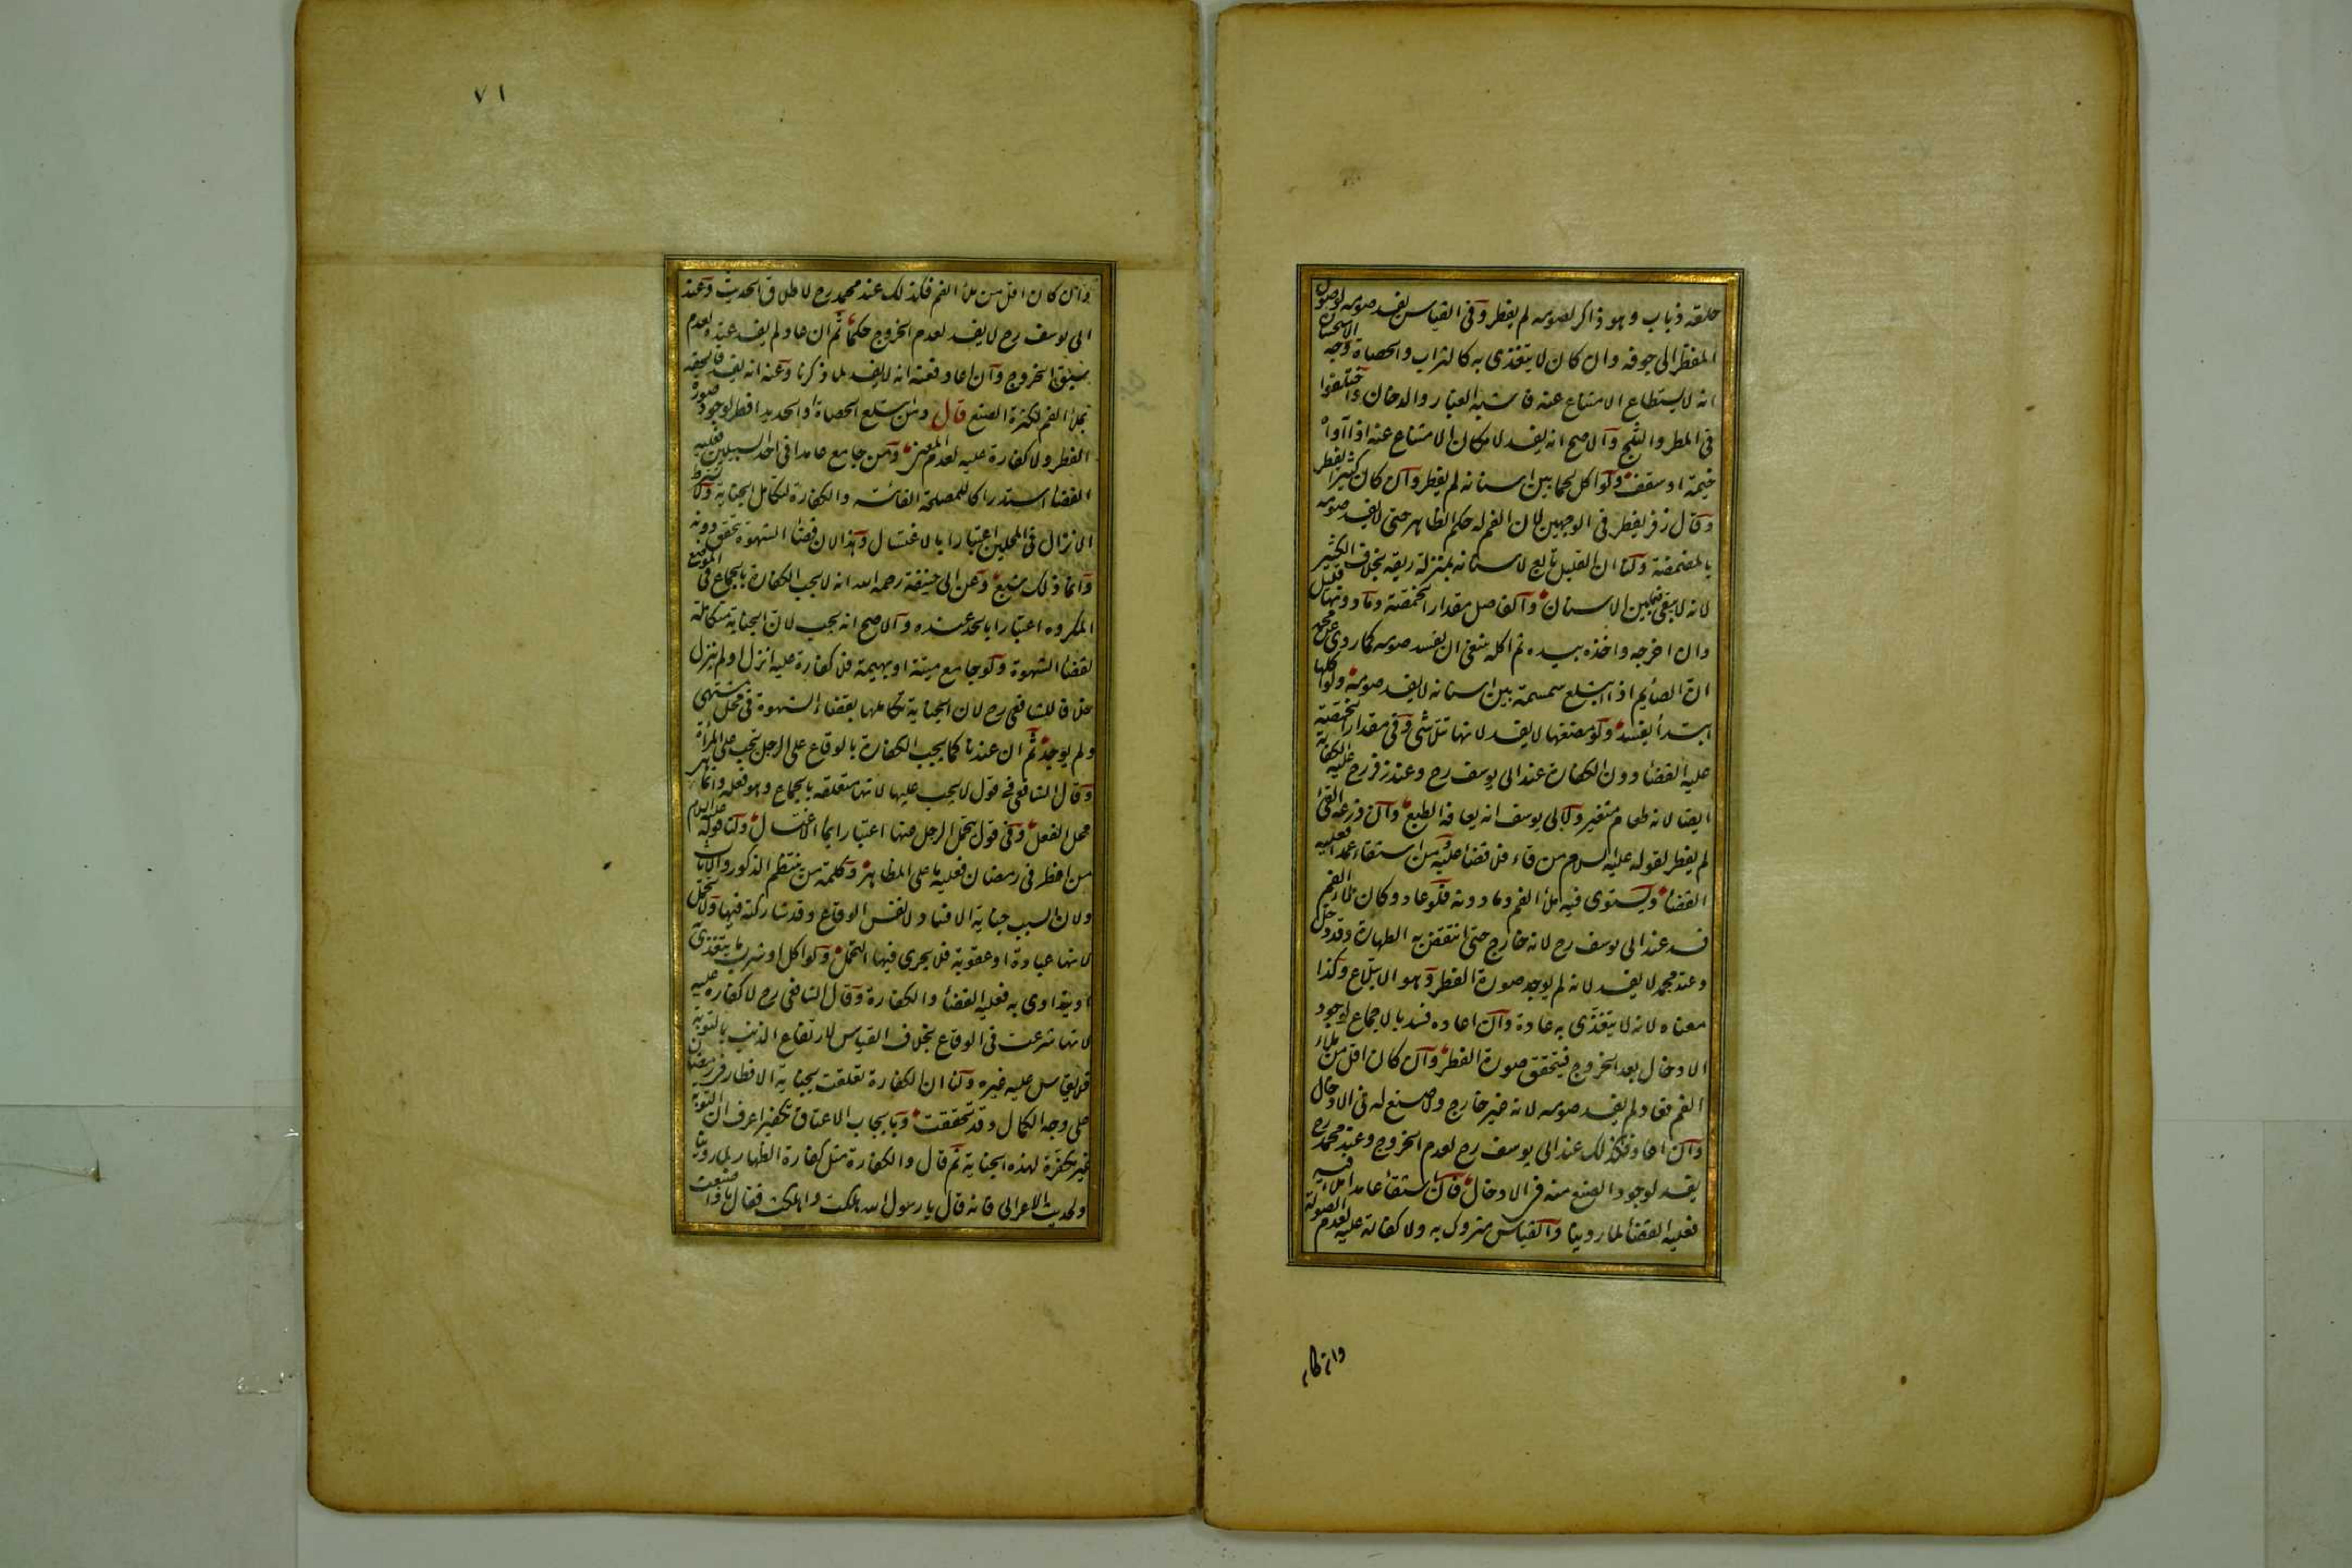 حلقه ذباب وهو ذاكر لصومه لم يفطر وفي القياس يفسد صومه لوصول
المفطر الى جوفه وان كان لا يتغذى به كالتراب والحصاة وجه الاستحسان
انه لا يستطاع الامتناع عنه فاشبه الغبار والدخان واختلفوا
في المطر والثلج والاصح انه يفسد لامكان الامتناع عنه اذا آواه
خيمة او سقف ولو اكل لحما بين اسنانه لم يفطر وان كان كثيرا يفطر
وقال زفر يفطر في الوجهين لان الفم له حكم الظاهر حتى لا يفسد صومه
بالمضمضة ولنا ان القليل تابع لاسنانه بمنزلة ريقه بخلاف الكثير
لانه لا يبقى فيما بين الاسنان والفاصل مقدار الحمصة وما دونها قليل
وان اخرجه واخذه بيده ثم اكله ينبغي ان يفسد صومه كما روى عن محمد
ان الصايم اذا ابتلع سمسمة بين اسنانه لا يفسد صومه ولو اكلها
ابتداً يفسد ولو مضغها لا يفسد لانها تتلاشى وفي مقدار الحمصة
عليه القضا دون الكفارة عند ابي يوسف رح وعند زفر رح عليه الكفارة
ايضا لانه طعام متغير ولابي يوسف انه يعافه الطبع وان ذرعه القئ
لم يفطر لقوله عليه السلام من قاء فلا قضا عليه ومن استقاء عمدا فعليه
القضا ويستوى فيه ملأ الفم وما دونه فلو عاد وكان ملأ الفم
فسد عند ابي يوسف رح لانه خارج حتى انتقض به الطهارة وقد دخل
وعند محمد لا يفسد لانه لم يوجد صورة الفطر وهو الابتلاع وكذا
معناه لانه لا يتغذى به عادة وان اعاده فسد بالاجماع لوجود
الادخال بعد الخروج فيتحقق صورة الفطر وان كان اقل من ملاء
الفم فعاد لم يفسد صومه لانه غير خارج ولا صنع له في الادخال
وان اعاد فكذلك عند ابي يوسف رح لعدم الخروج وعند محمد رح
يفسد لوجود الصنع منه في الادخال فان استقا عامدا ملأ فيه
فعليه القضا لما روينا والقياس متروك به ولا كفارة عليه لعدم الصورة
وان كان
٧١
وان كان اقل من ملأ الفم فكذلك عند محمد رح لاطلاق الحديث وعند
ابي يوسف رح لا يفسد لعدم الخروج حكما ثم ان عاد لم يفسد عنده لعدم
سبق الخروج وان اعاد فعنه انه لا يفسد لما ذكرنا وعنه انه يفسد فالحقه
بملأ الفم لكثرة الصنع قال ومن ابتلع الحصاة او الحديد افطر لوجود صورة
الفطر ولا كفارة عليه لعدم المعنى ومن جامع عامدا في احد السبيلين فعليه
القضا استدراكا للمصلحة الفائتة والكفارة لتكامل الجناية ولا يشترط
الانزال في المحلين اعتبارا بالاغتسال وهذا لان قضا الشهوة تحقق دونه
وانما ذلك شبع وعن ابي حنيفة رحمه الله انه لا يجب الكفارة بالجماع في الموضع
المكروه اعتبارا بالحد عنده والاصح انه يجب لان الجناية متكاملة
لقضا الشهوة ولو جامع ميتة او بهيمة فلا كفارة عليه انزل او لم ينزل
خلافا للشافعي رح لان الجناية تكاملها بقضاء الشهوة في محل مشتهى
ولم يوجد ثم ان عندنا كما يجب الكفارة بالوقاع على الرجل تجب على المرأة
وقال الشافعي في قول لا يجب عليها لانها متعلقة بالجماع وهو فعله وانما هي
محل الفعل وفي قول يتحمل الرجل عنها اعتبارا بماء الاغتسال ولنا قوله عليه السلام
من افطر في رمضان فعليه ما على المظاهر وكلمة من ينتظم الذكور والاناث
ولان السبب جناية الافساد لا نفس الوقاع وقد شاركته فيها ولا يتحمل
لانها عبادة او عقوبة فلا يجرى فيها التحمل ولو اكل او شرب ما يتغذى به
او يتداوى به فعليه القضا والكفارة وقال الشافعي رح لا كفارة عليه
لانها شرعت في الوقاع بخلاف القياس لارتفاع الذنب بالتوبة
فلا يقاس عليه غيره ولنا ان الكفارة تعلقت بجناية الافطار في رمضان
على وجه الكمال وقد تحققت وبايجاب الاعتاق تكفيرا عرف ان التوبة
غير مكفرة لهذه الجناية ثم قال والكفارة مثل كفارة الظهار لما روينا
ولحديث الاعرابي فانه قال يا رسول الله هلكت واهلكت فقال ماذا صنعت